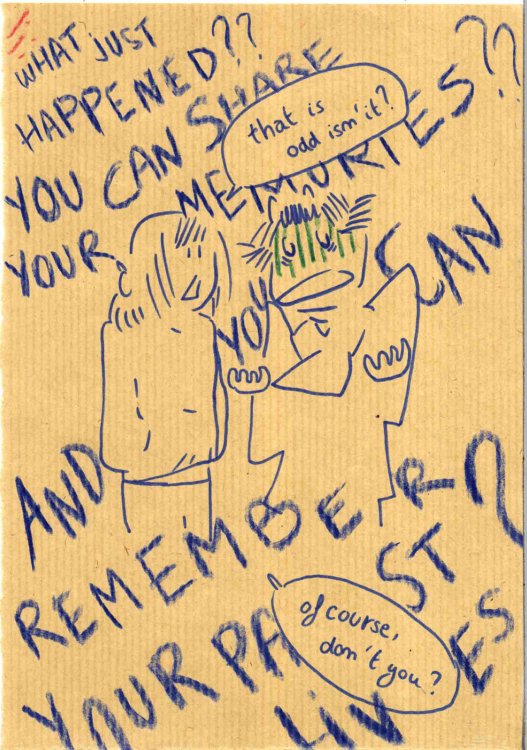 WHAT JUST
HAPPENED??
YOU CAN SHARE
YOUR MEMORIES??
that is
odd isn'it?
YOU CAN
AND
REMEMBER?
YOUR PAST
LIVES
of course,
don't you?